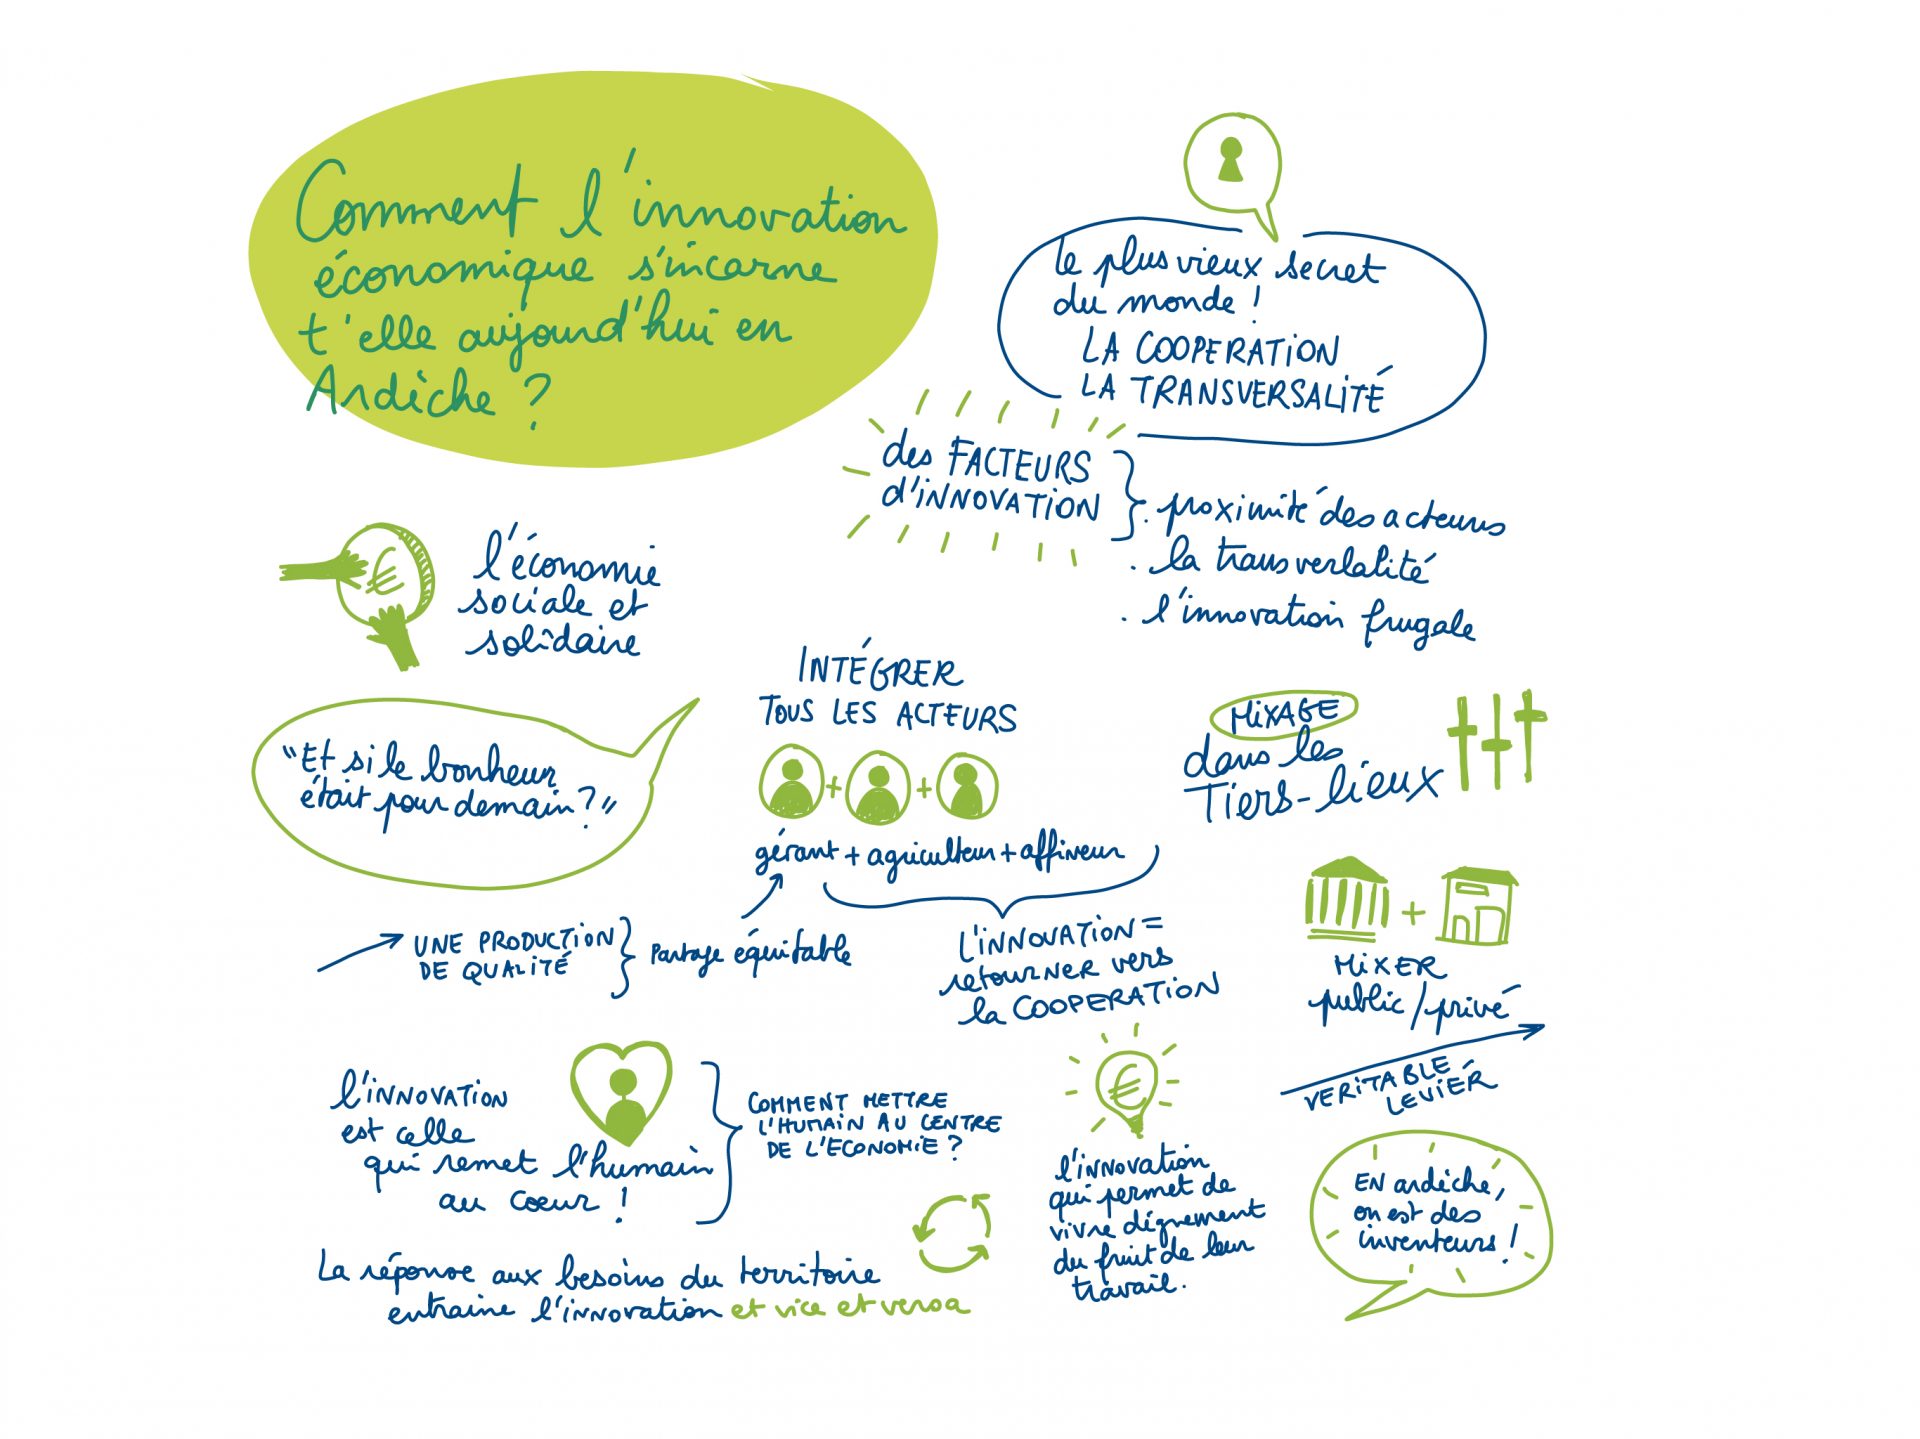 Comment l'innovation
économique s'incarne
t'elle aujourd'hui en
Ardèche ?
le plus vieux secret
du monde !
LA COOPERATION
LA TRANSVERSALITÉ
des FACTEURS
d'INNOVATION
. proximité des acteurs
. la transverlalité
. l'innovation frugale
l'économie
sociale et
solidaire
INTÉGRER
TOUS LES ACTEURS
MIXAGE
dans les
Tiers-lieux
"Et si le bonheur
était pour demain ?"
+ +
gérant + agriculteur + affineur
+
UNE PRODUCTION
DE QUALITÉ
Partage équitable
L'INNOVATION =
retourner vers
la COOPERATION
MIXER
public/privé
VERITABLE
LEVIER
l'INNOVATION
est celle
qui remet l'humain
au coeur !
COMMENT METTRE
L'HUMAIN AU CENTRE
DE L'ECONOMIE ?
€
€
l'innovation
qui permet de
vivre dignement
du fruit de leur
travail.
EN ardèche,
on est des
inventeurs !
La réponse aux besoins du territoire
entraine l'innovation et vice et versa